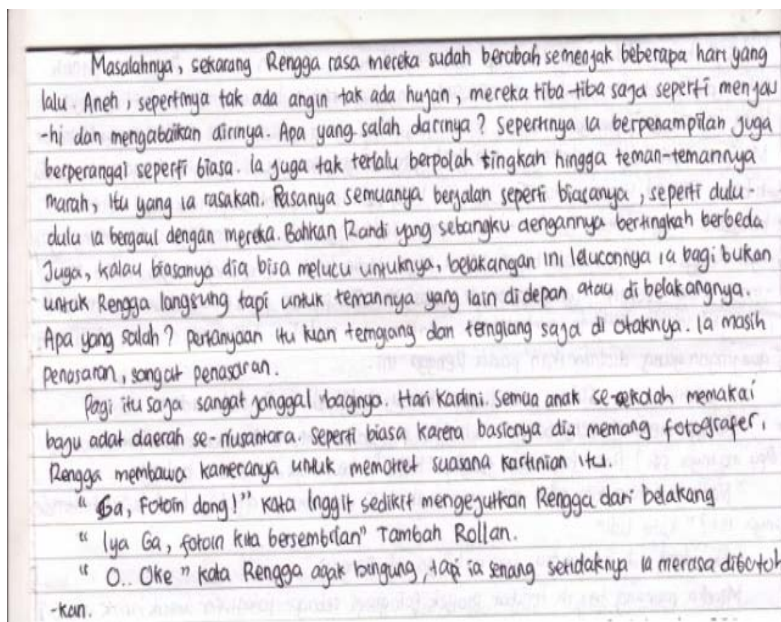 Masalahnya, sekarang Rengga rasa mereka sudah berubah semenjak beberapa hari yang
lalu. Aneh, sepertinya tak ada angin tak ada hujan, mereka tiba-tiba saja seperti menjau
-hi dan mengabaikan dirinya. Apa yang salah darinya? Sepertinya ia berpenampilan juga
berperangai seperti biasa. Ia juga tak terlalu berpolah tingkah hingga teman-temannya
marah, itu yang ia rasakan. Rasanya semuanya berjalan seperti biasanya, seperti dulu-
dulu ia bergaul dengan mereka. Bahkan Randi yang sebangku dengannya bertingkah berbeda
Juga, kalau biasanya dia bisa melucu untuknya, belakangan ini leluconnya ia bagi bukan
untuk Rengga langsung tapi untuk temannya yang lain di depan atau di belakangnya.
Apa yang salah? pertanyaan itu kian terngiang dan terngiang saja di otaknya. Ia masih
penasaran, sangat penasaran.
Pagi itu saja sangat janggal baginya. Hari Kartini. Semua anak se-sekolah memakai
baju adat daerah se-nusantara. Seperti biasa karena basicnya dia memang fotografer,
Rengga membawa kameranya untuk memotret suasana kartinian itu.
"Ga, Fotoin dong!" kata Inggit sedikit mengejutkan Rengga dari belakang
"Iya Ga, fotoin kita bersembilan" Tambah Rollan.
"O.. Oke" kata Rengga agak bingung, tapi ia senang setidaknya ia merasa dibutuh
-kan.